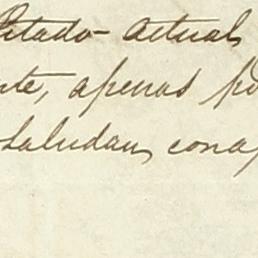 Estado actual
nte, apenas po
saludan, cona